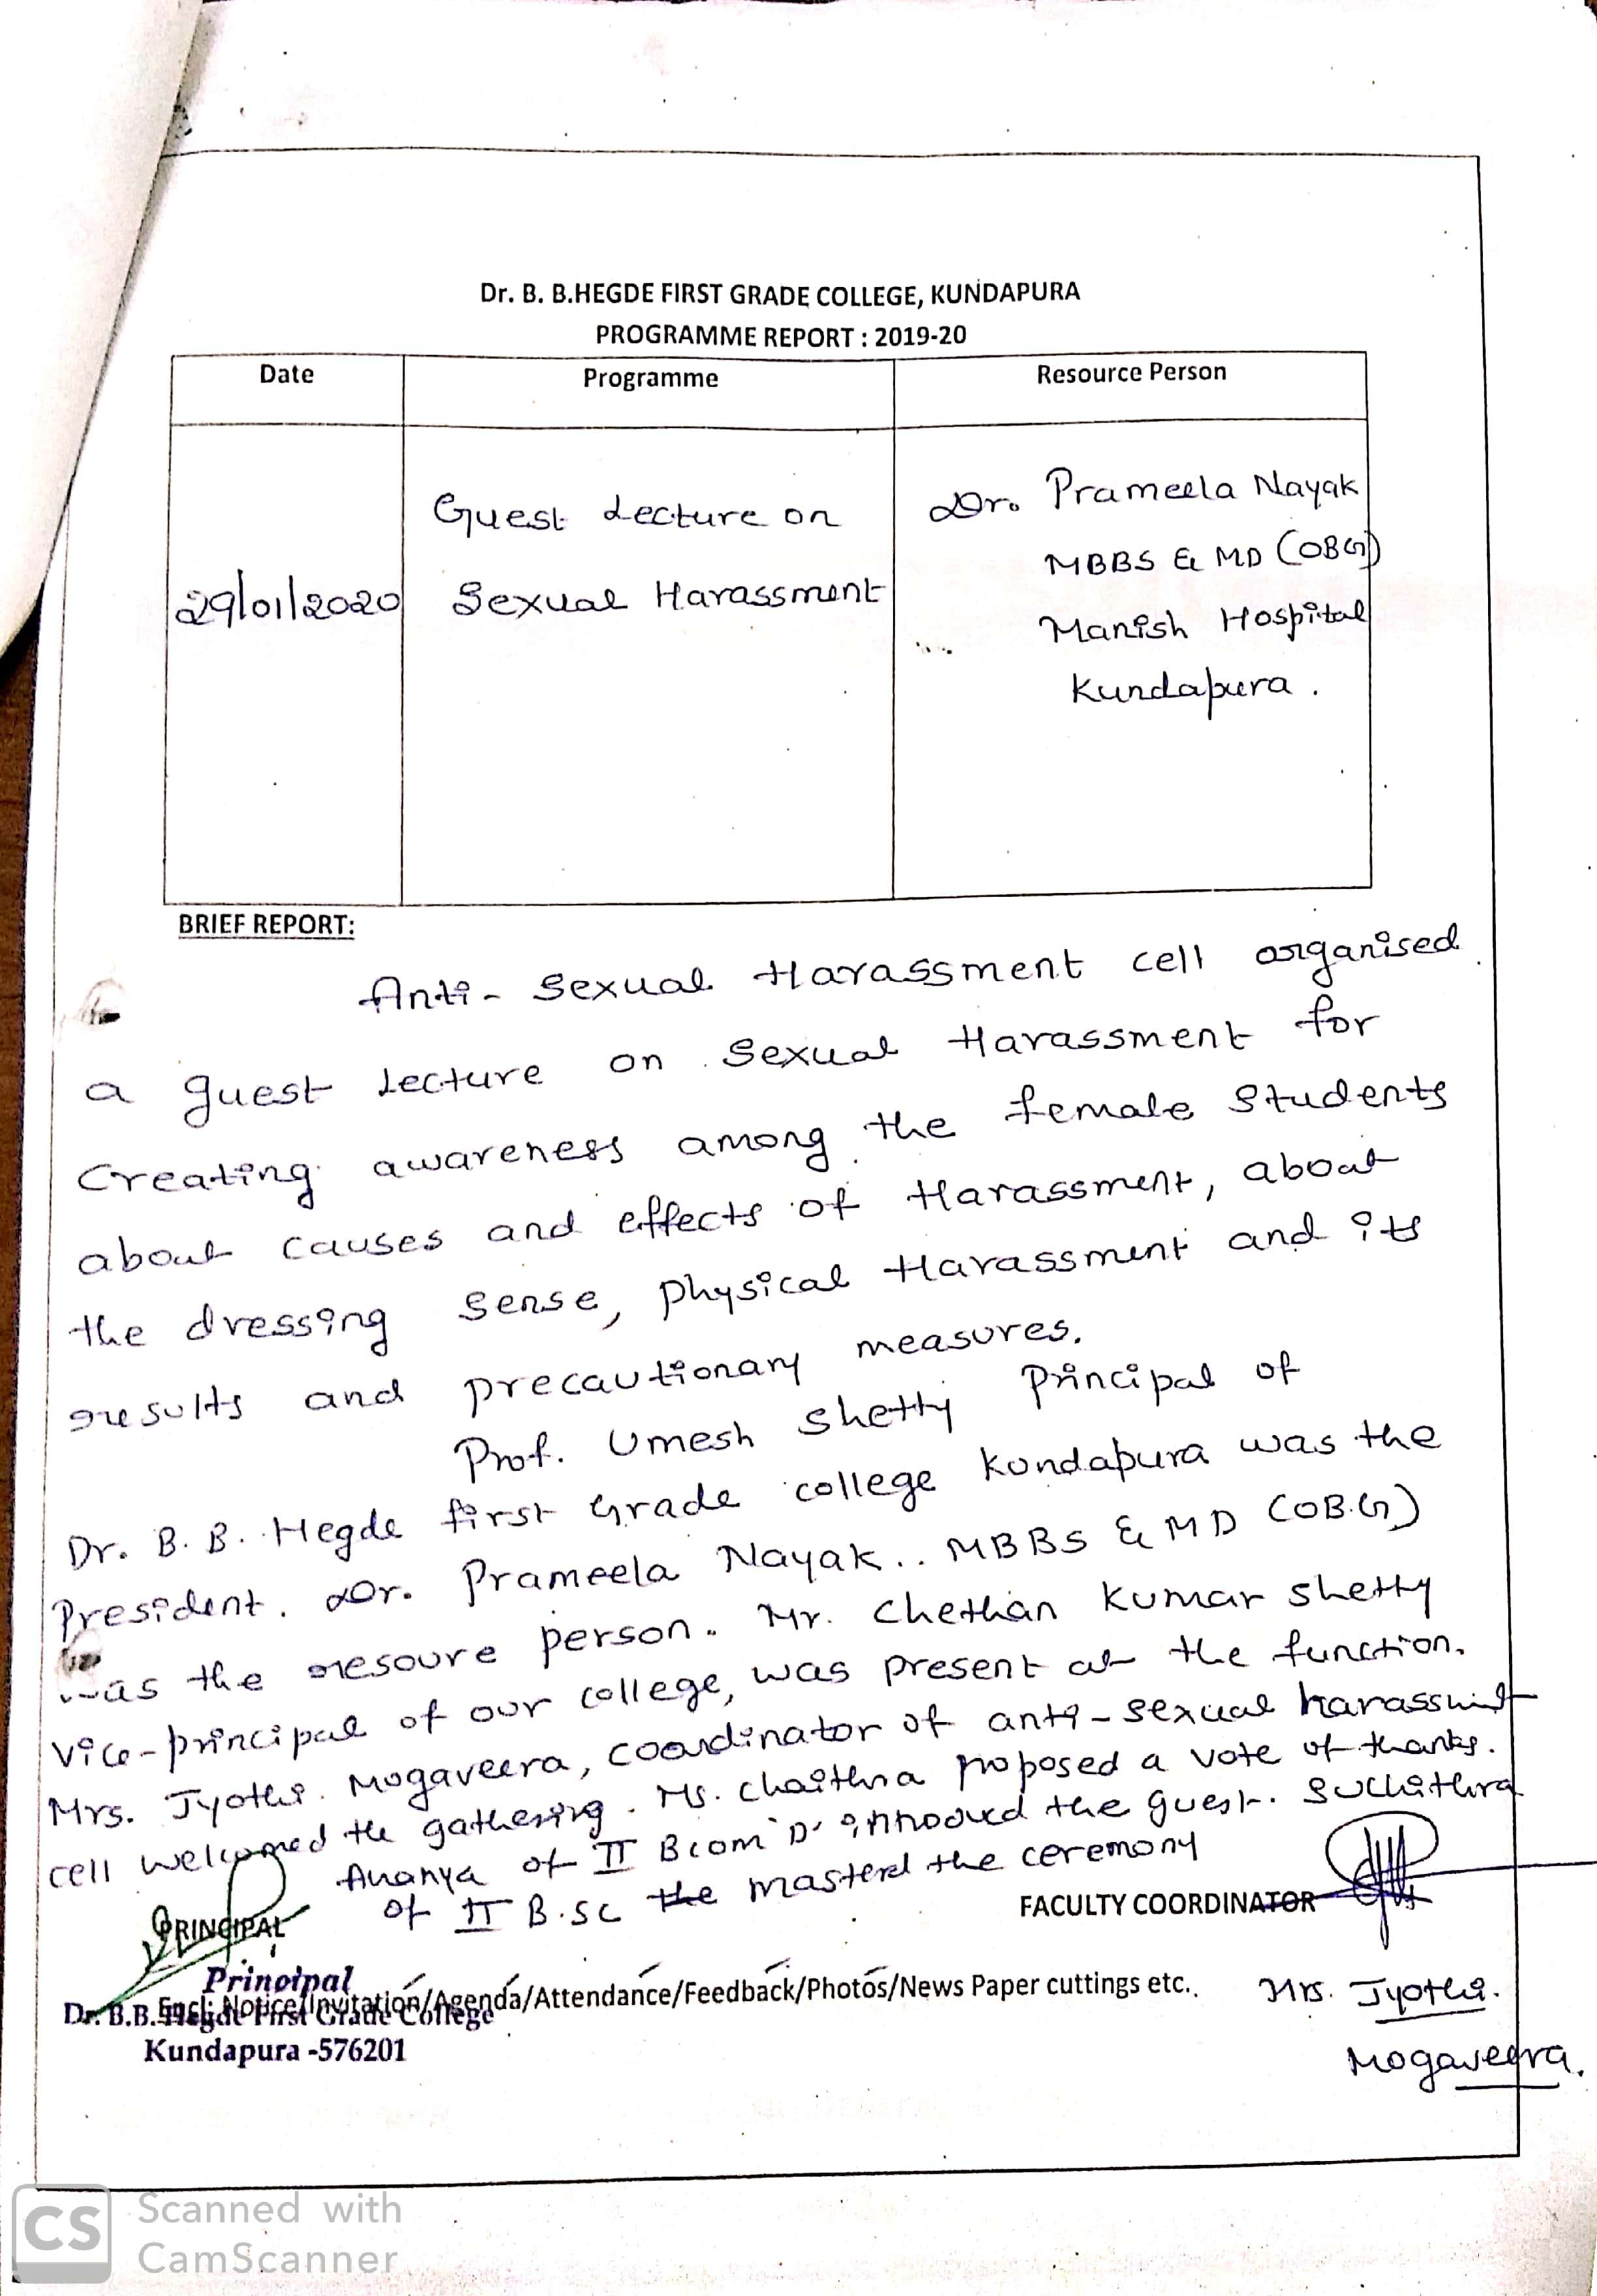 Dr. B. B.HEGDE FIRST GRADE COLLEGE, KUNDAPURA
PROGRAMME REPORT : 2019-20
Date Programme Resource Person
29/01/2020
Guest Lecture on
Sexual Harassment
Dr. Prameela Nayak
MBBS & MD (OBG)
Manish Hospital
Kundapura.
BRIEF REPORT:
Anti- Sexual Harassment cell organised
a guest Lecture on Sexual Harassment for
Creating awareness among the female Students
about causes and effects of Harassment, about
the dressing sense, physical Harassment and its
results and precautionary measures.
Prof. Umesh Shetty Principal of
Dr. B. B. Hegde first Grade college Kundapura was the
President. Dr. Prameela Nayak.. MBBS & MD (OB.G)
was the resoure person. Mr. Chethan Kumar Shetty
Vice-principal of our college, was present at the function.
Mrs. Jyothi Mogaveera, coordinator of anti-sexual harassment
cell welcomed the gathering. Ms. Chaithra proposed a vote of thanks.
Ananya of II Bcom 'D' the guest. Suchithra
of II B.Sc the mastered the ceremony
PRINCIPAL
FACULTY COORDINATOR
Principal
Encl: Notice/Invitation/Agenda/Attendance/Feedback/Photos/News Paper cuttings etc..
Dr. B.B. Hegde First Grade College
Kundapura -576201
Mrs. Jyothi.
Mogaveera.
CS Scanned with
CamScanner